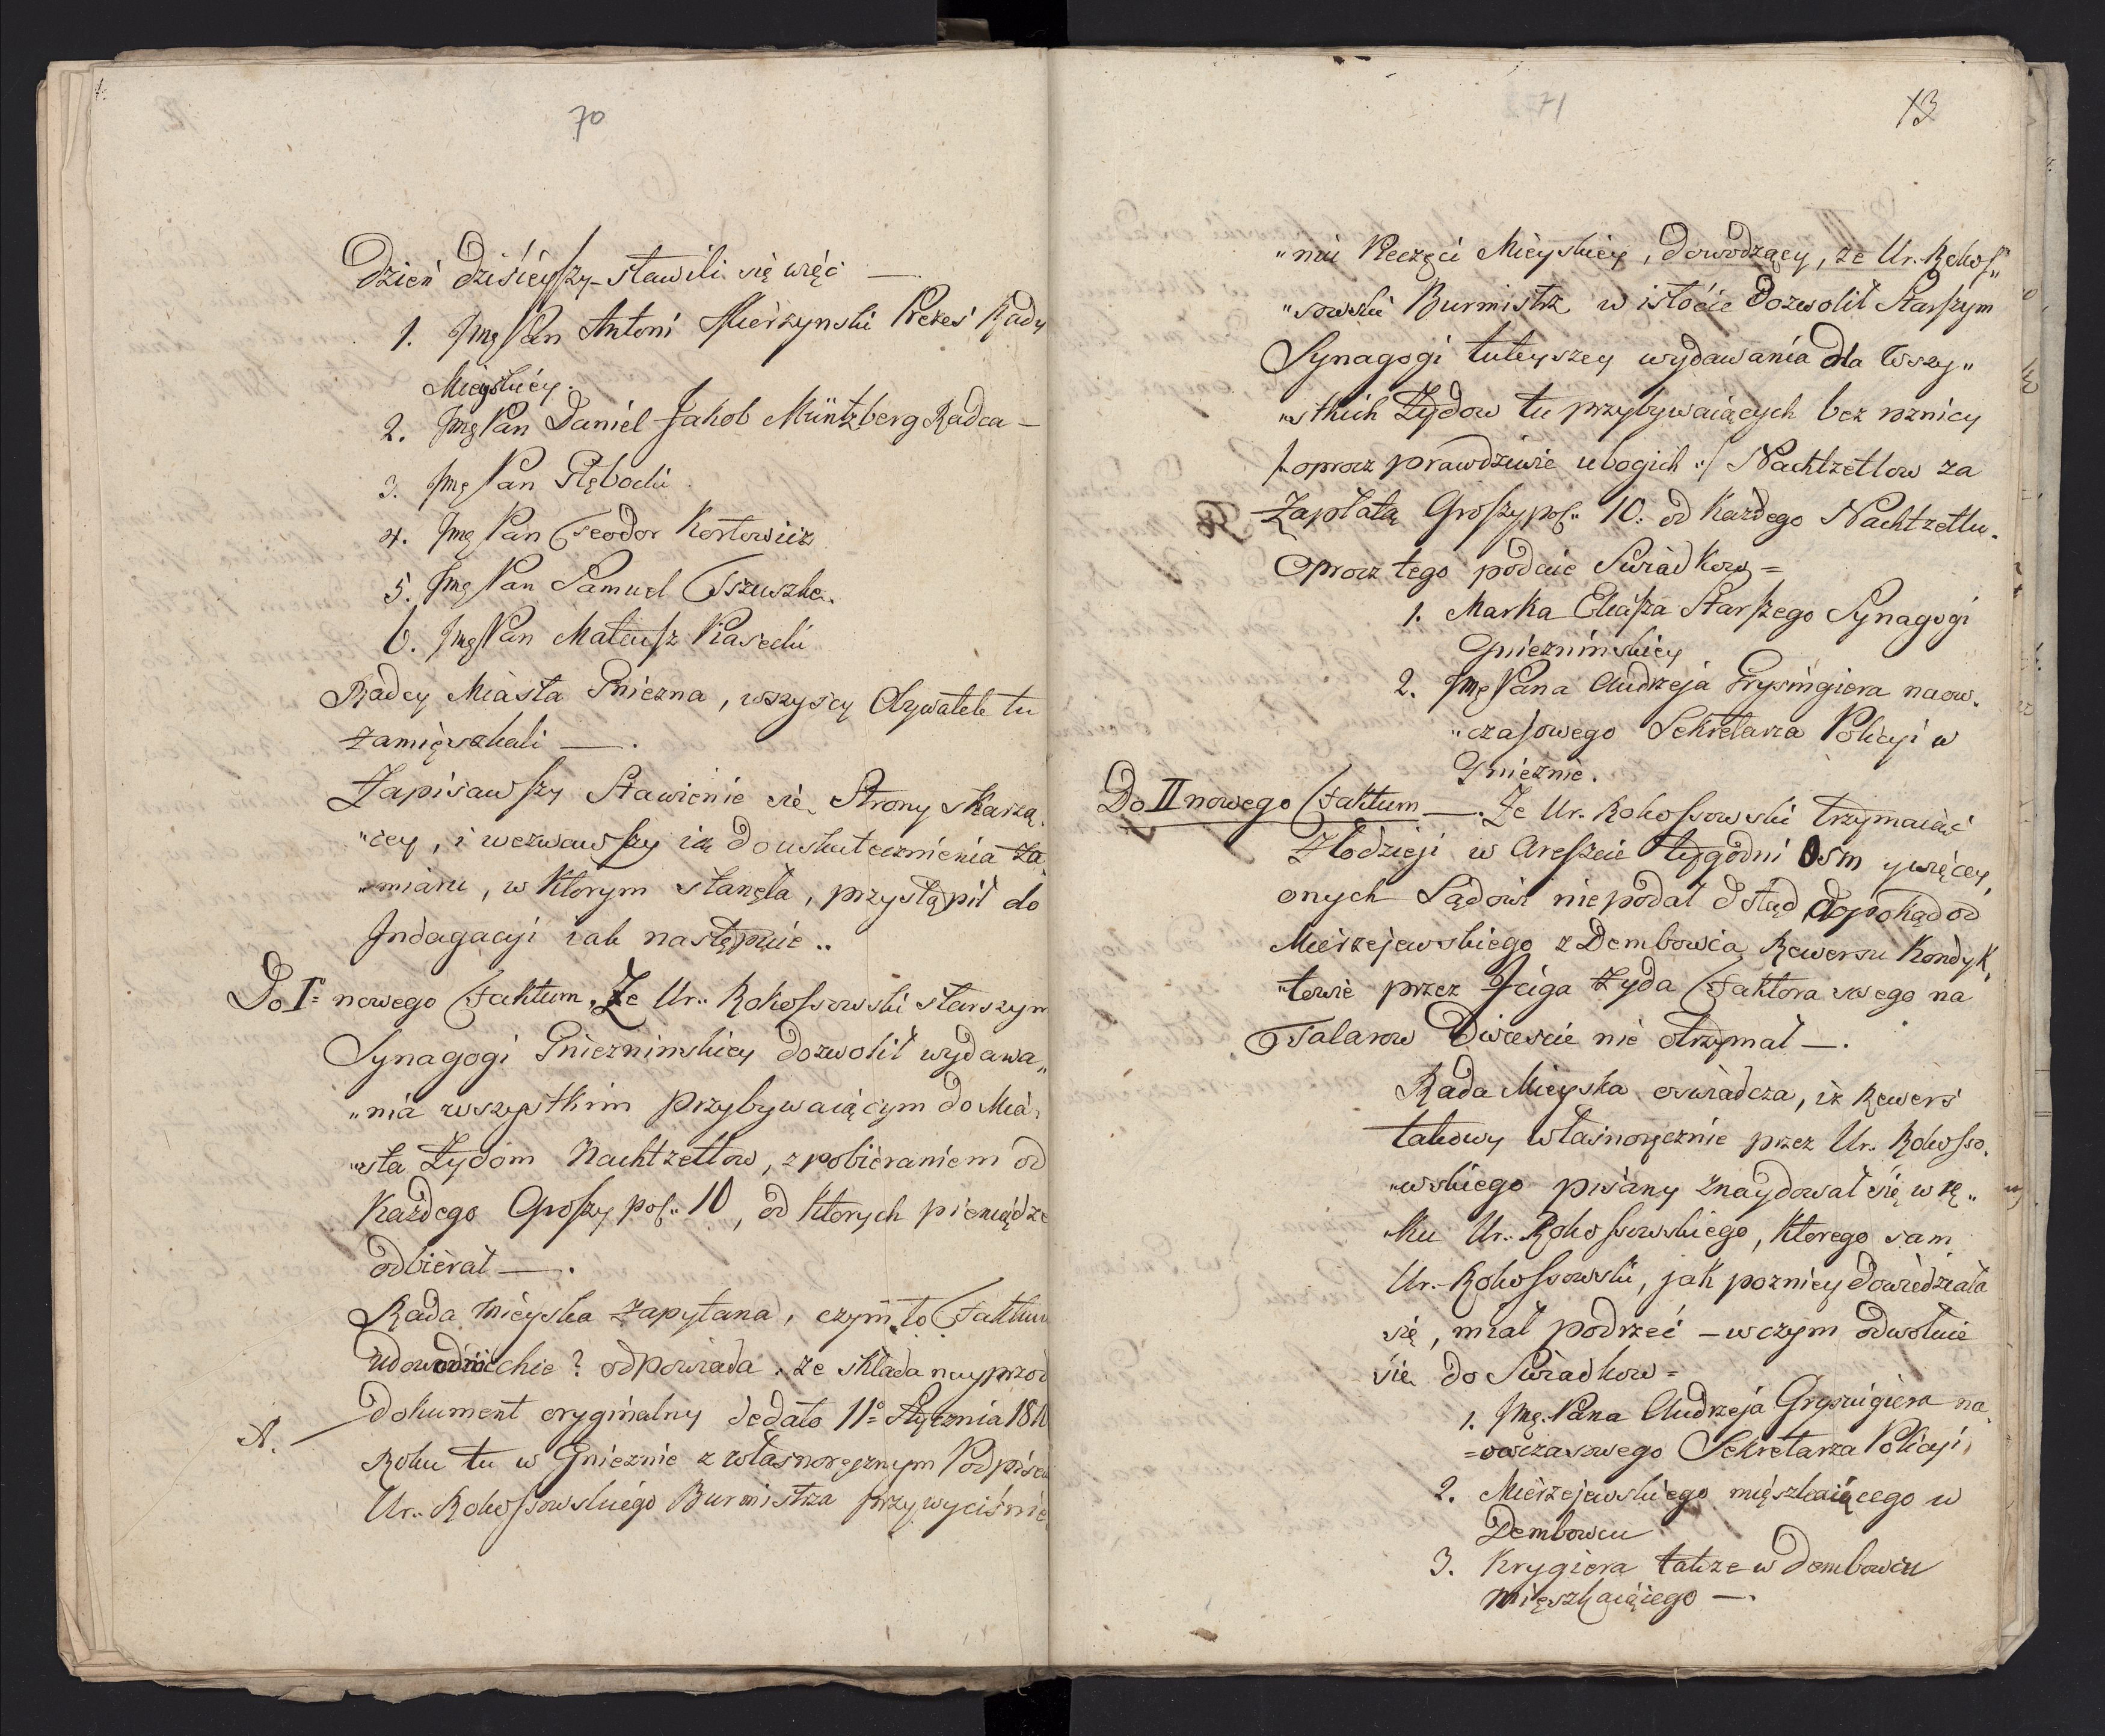 70
Dzień dzisieyszy stawili się więc —
1. Jmę Pan Antoni Mierzynski Prezes Rady
Mieyskiey.
2. Jmę Pan Daniel Jakob Müntzberg Radca —
3. Jmę Pan Głębocki
4. Jmę Pan Teodor Kortowicz
5. Jmę Pan Samuel Tszuszke.
6. Jmę Pan Mateusz Piasecki
Radcy Miasta Gniezna, wszyscy Obywatele tu
zamięszkali —.
Zapisawszy Stawienie się Strony skarzą„
„cey, i wezwawszy ią do uskutecznienia za„
„miaru, w ktorym stanęła, przystąpił do
Indagacyi iak następuie..
Do I= nowego Faktum. Ze Ur.. Rokossowski starszym
Synagogi Gniezninskiey dozwolił wydawa„
„nia wszystkim przybywaiącym do Mia„
„sta Zydom Nachtzetlow, z pobieraniem od
każdego Groszy pol.. 10, od ktorych pieniądze
odbierał —.
Rada mieyska zapytana, czym to Faktum
udowodnić chce? odpowiada: ze składa nayprzod
A. Dokument oryginalny de dato 11o= Stycznia 1810
Roku tu w Gnieznie z własnoręcznym Podpisem
Ur.. Rokossowskiego Burmistrza przy wyciśnie„
71
13
„niu Pieczęci Mieyskiey, dowodzący, ze Ur. Rokos„
„sowski Burmistrz w istocie dozwolił Starszym
Synagogi tuteyszey wydawania dla wszy„
„stkich Zydow tu przybywaiących bez roznicy
/. oprocz prawdziwie ubogich ./ Nachtzetlow za
Zapłatą Groszy pol.. 10. od każdego Nachtzetlu.
Oprocz tego podaie Swiadkow =
1. Marka Eliasza Starszego Synagogi
Gniezninskiey
2. Jmę Pana Andrzeja Grysingiera naow„
„czasowego Sekretarza Policyi w
Gnieznie.
Do II nowego Faktum —. Ze Ur. Rokossowski trzymaiąc
Złodzieji w Areszcie tygodni Osm y więcey,
onych Sądowi nie podał dotąd dopokąd od
Mierzejewskiego z Dembowca Rewersu Kondyk„
„towie przez Iciga Zyda Faktora swego na
Talarow Dwieście nie otrzymał —.
Rada Mieyska oswiadcza, iż Rewers
takowy własnoręcznie przez Ur.. Rokosso„
„wskiego pisany znaydował się w rę„
„ku Ur.. Rokossowskiego, ktorego sam
Ur.. Rokossowski, jak pozniey dowiedziała
się, miał podrzeć — w czym odwołuie
się do Swiadkow =
1. Jmę. Pana Andrzeja Grysingiera na
=owczasowego Sekretarza Policyi,
2. Mierzejewskiego mięszkaiącego w
Dembowcu
3. Krygiera takze w Dembowcu
mięszkaiącego —.